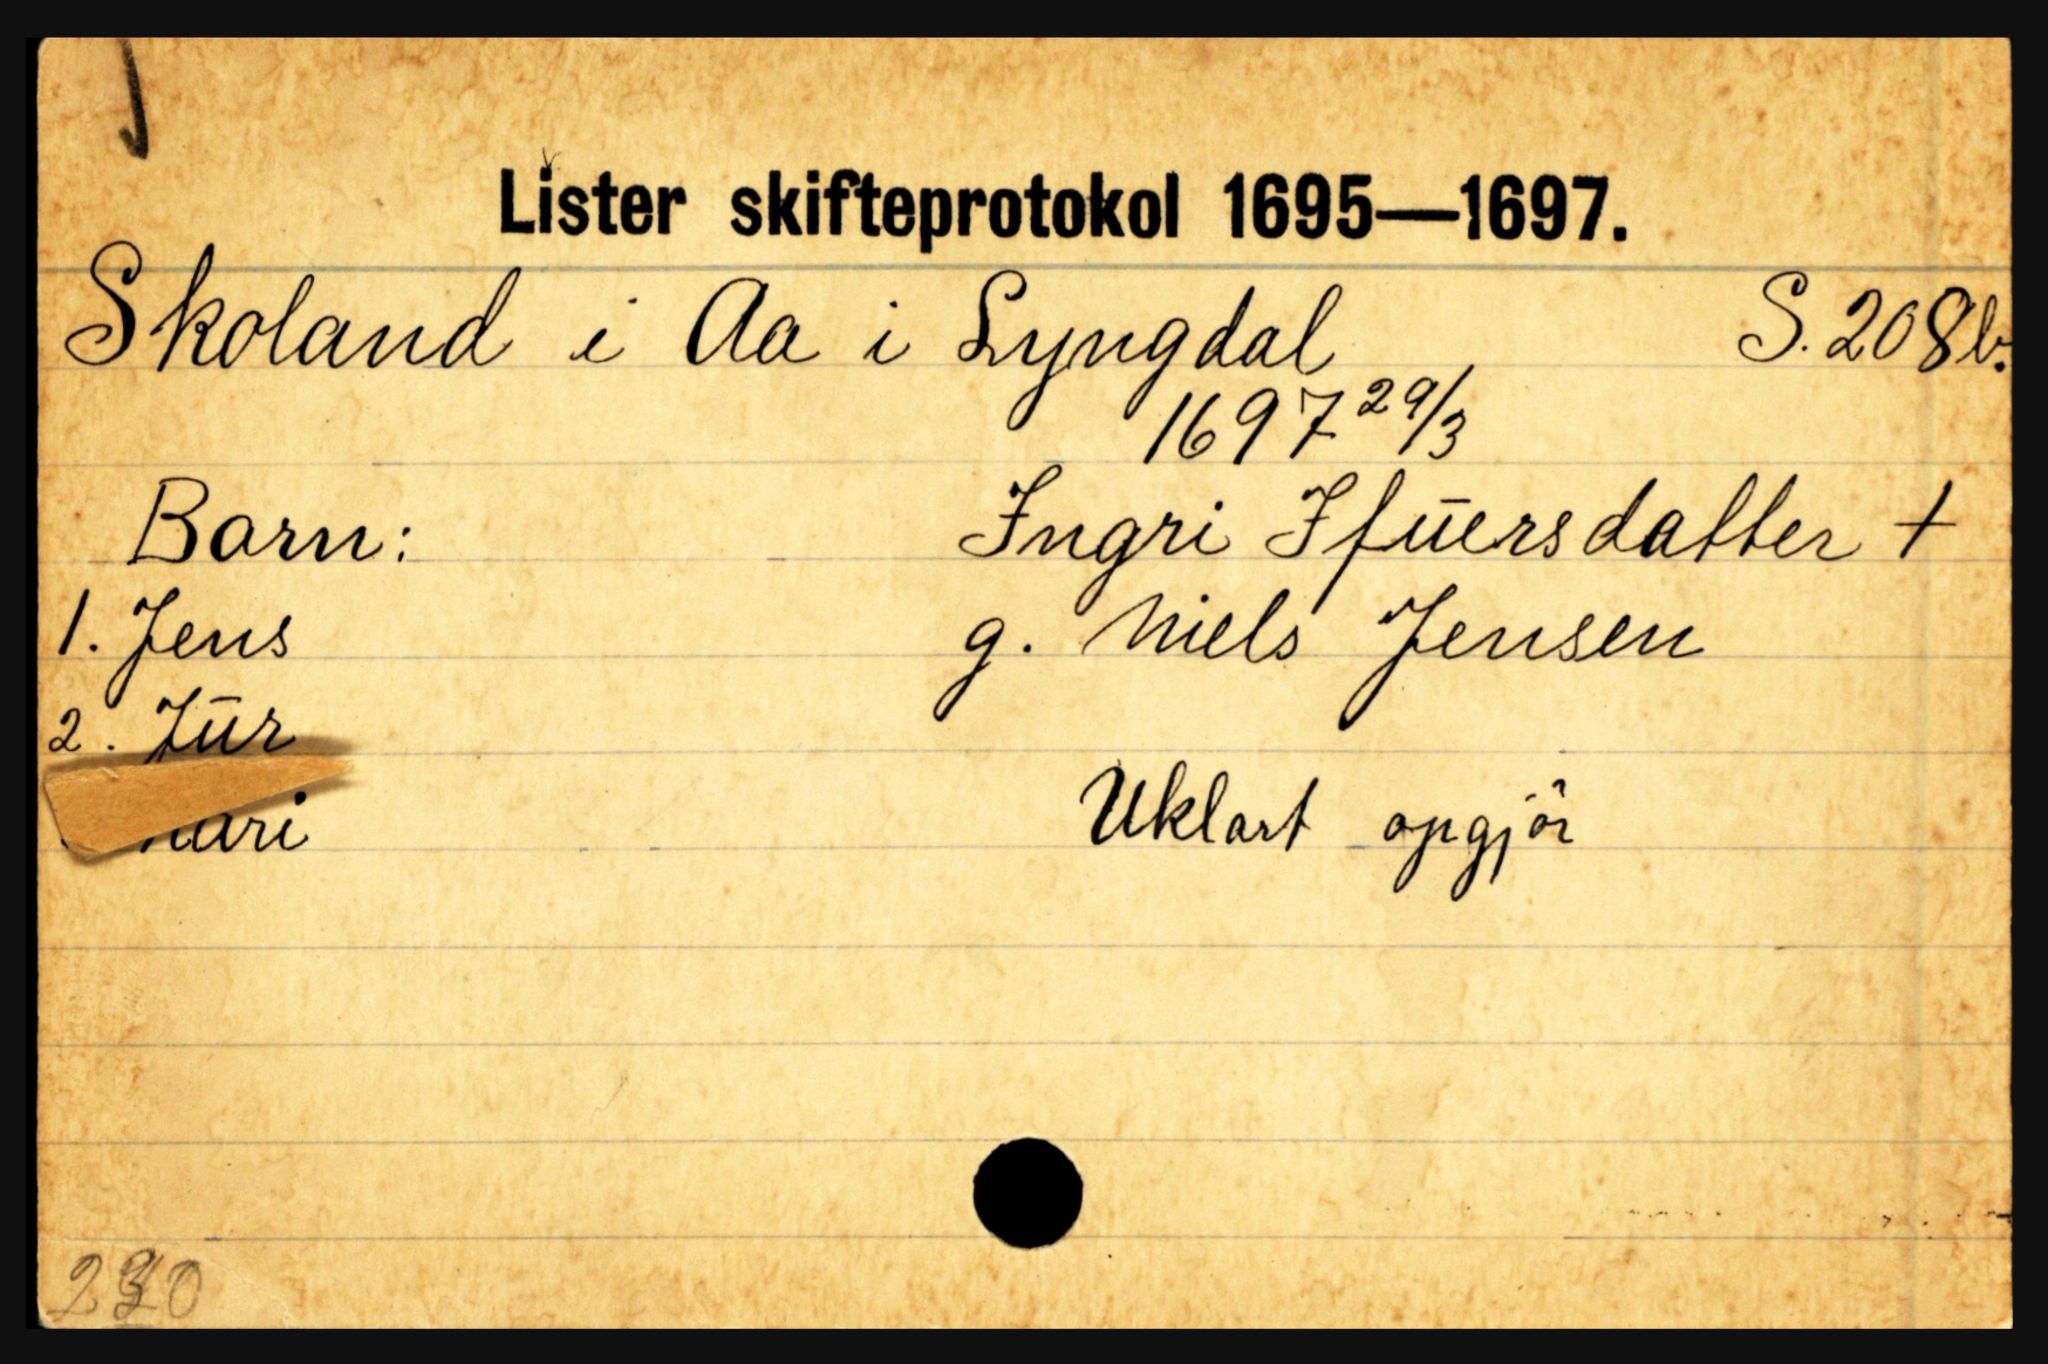 Lister skifteprotokol 1695—1697.
Skoland i Aa i Lyngdal S. 208b.
1697 29/3
Barn: Ingri Ifūersdatter +
1. Jens g. Niels Jensen
2. Jūr
Uklart opgjör